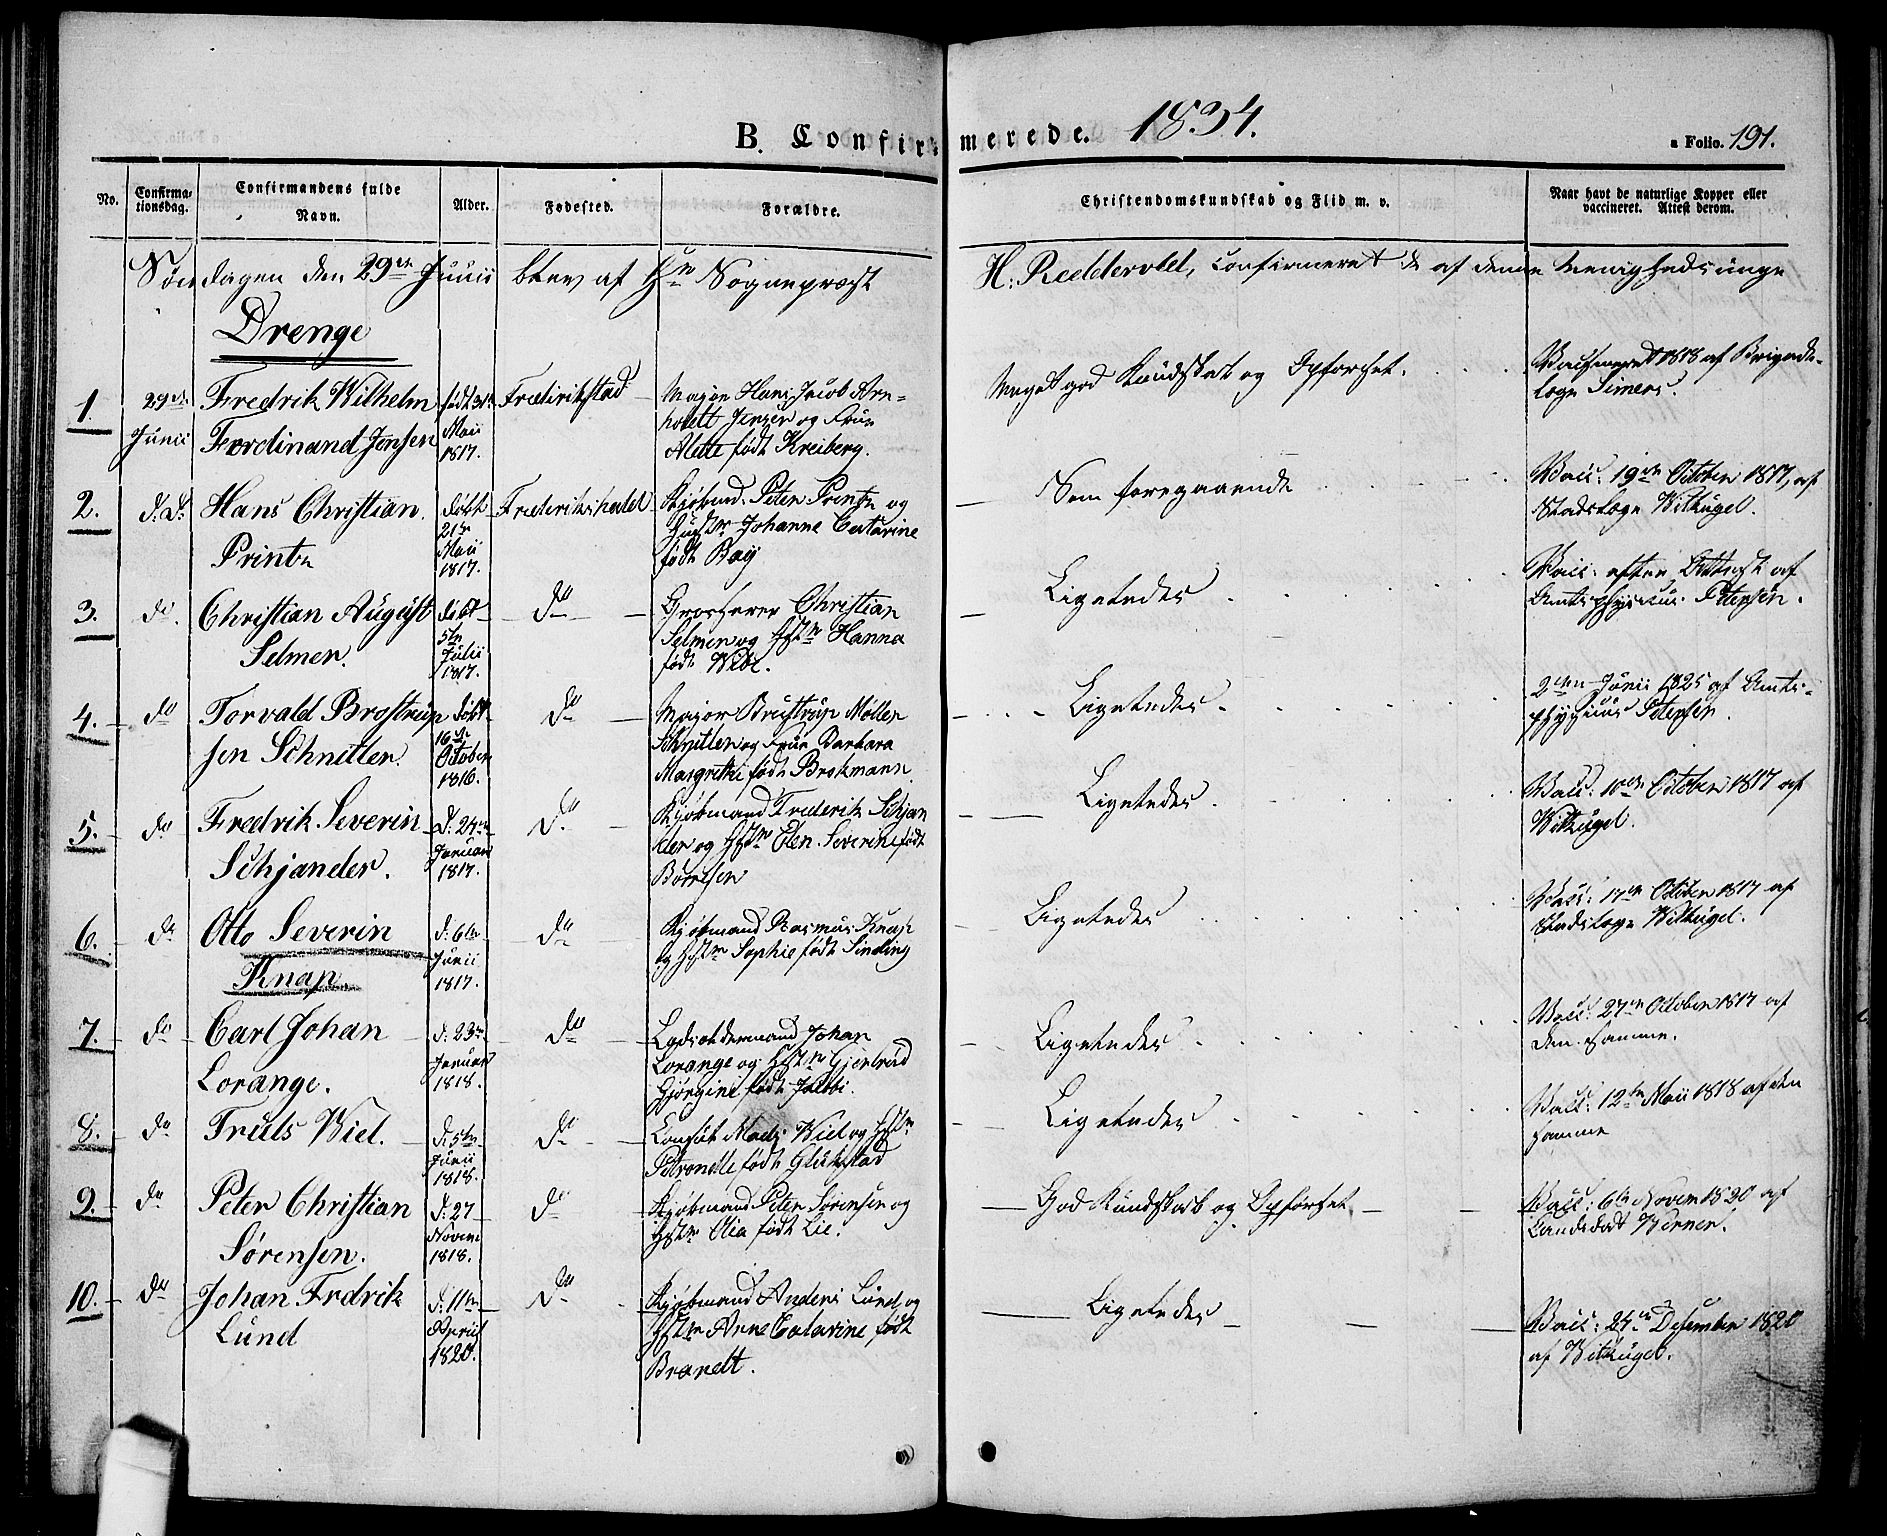 B. Confirmerede. 1834.
a Folio. 191.
No.
Confirmationsdag.
Confirmandens fulde Navn.
Alder.
Fødested.
Forældre.
Christendomskundskab og Flid m. v.
Naar havt de naturlige Kopper eller vaccineret. Attest derom.
Søndagen den 29de Junii blev af Hr Sognepræst H: Reddervold, confirmeret de af denne Menigheds unge
Drenge
1. 29de Fredrik Wilhelm født 31te Frederikstad Major Hans Jacob Arn- Meget god Kundskab og Opførsel. 1818 af Brigade-
Junii Ferdinand Jensen Maii Jensen og Frue læge Simers.
1817. Mette født Kreiberg.
2. d: d: Hans Christian født Frederikshald Kjøbmd. Peter Printz og Som foregaaende Vacc: 19de October 1817, af
Printz 21de Hustr Johanne Catarine Stadslæge Withugel.
Maii født Bay
1817.
3. do. Christian August født do Christian Ligeledes Vacc: efter Attest af
Selmer. 5te Selmer og Hstr Hanna Amtsphysicus Petersen.
Julii født Wibe.
1817.
4. do Torvald Brostrup født do Major Brustrup Møller Ligeledes. 2den Junii 1825 af Amts-
sen Schnitler. 16de Schnitler og Frue Barbara physicus Petersen.
October Margrethe født Brokmann.
1816.
5. do Fredrik Severin d: 24de d: Kjøbmand Frederik Schjan Ligeledes. Vacc. 10de October 1817 af
Schjander. Januar der og Hstr Elen Severine født Withugel.
1817. Børresen
6. do Otto Severin d: 6te do Kjøbmand Rasmus Knap Ligeledes Vacc: 17de October 1817 af
Knap. Junii og Hstr Sophie født Sinding Stadslæge Withugel.
1817.
7. do Carl Johan d: 23de do Lodsoldermand Johan Ligeledes Vacc: 27de October 1817 af
Lorange. Januar Lorange og Hstr Gjertrud den samme.
1818. Gjørgine født Jacobi.
8. do Truls Wiel. d: 5te do Consul Mads Wiel og Hstr Ligeledes Vacc: 12te Maii 1818 af den
Junii Petronelle født Glükstad samme
1818.
9. do Peter Christian d: 27 do Kjøbmand Peter Sørensen og God Kundskab og Opførsel Vacc: 6te Novem 1820 af
Sørensen. Novem Hstr Olia født Lie. Werner.
1818.
10. do Johan Fredrik d: 11te do Kjøbmand Anders Lund og Ligeledes Vacc: 24de Desember 1820
Lund April Hstr Anne Catarine født af Withugel.
1820. Brandt.